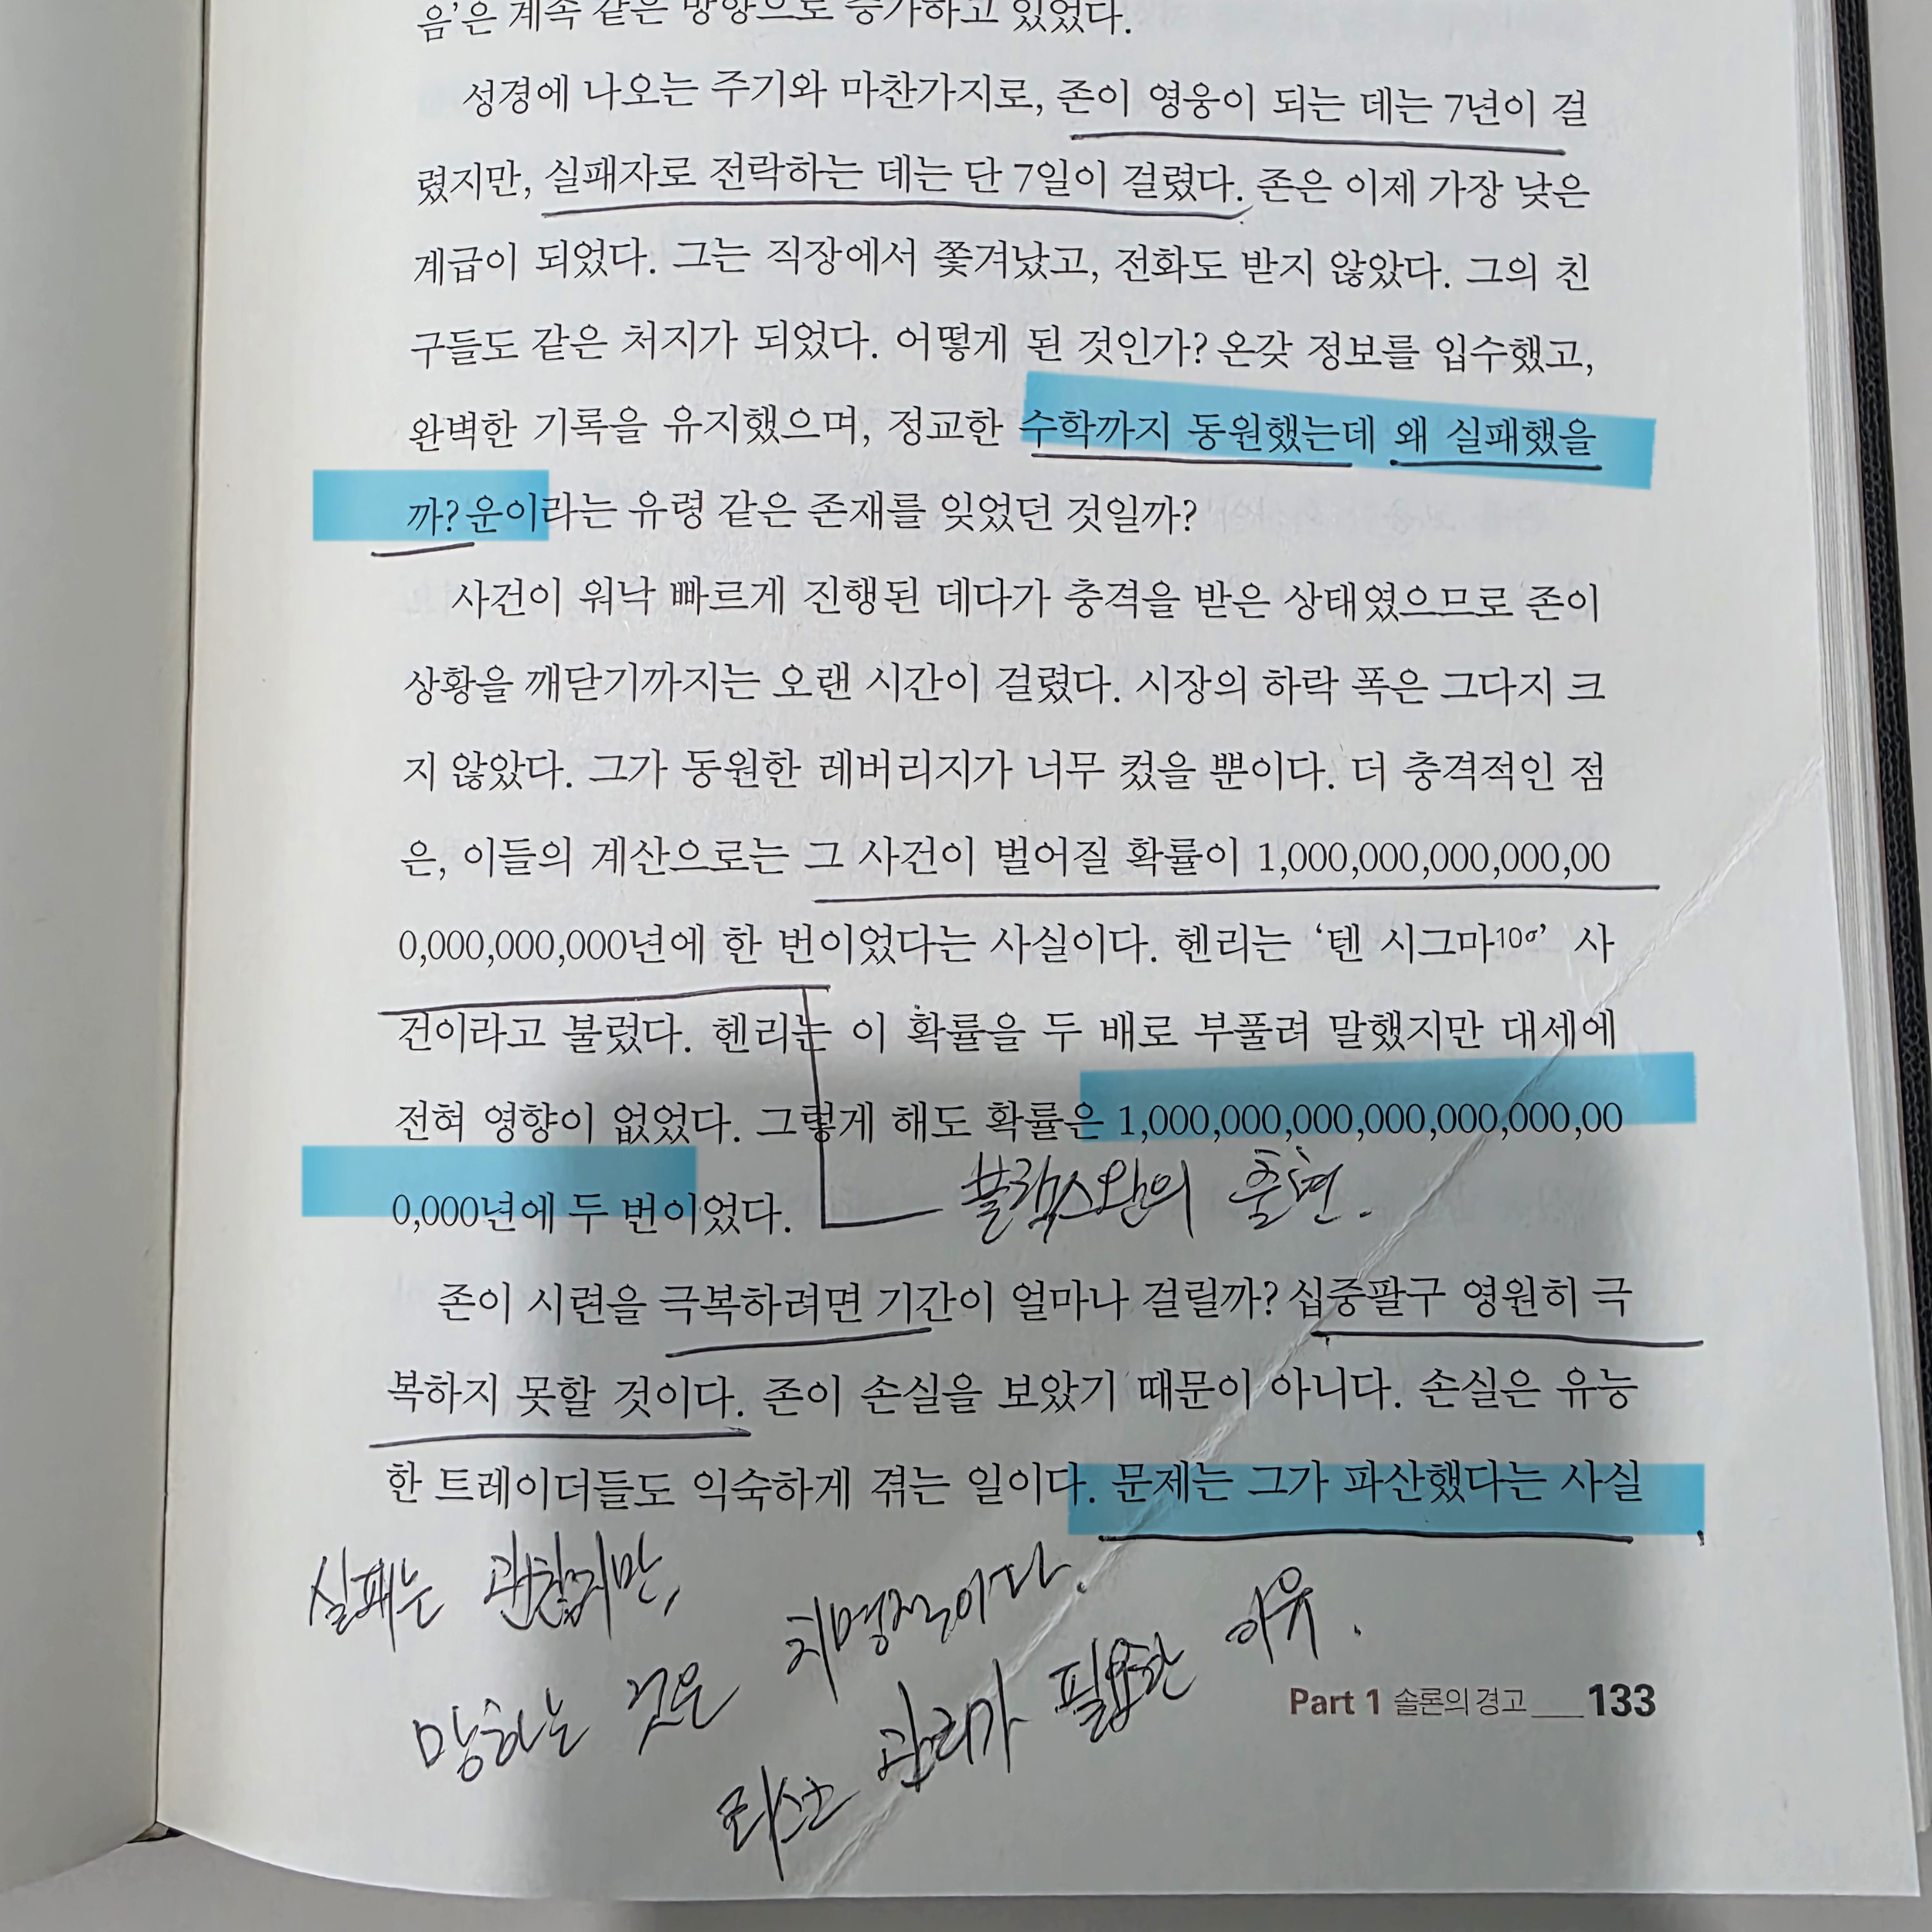 음’은 계속 같은 방향으로 증가하고 있었다.
성경에 나오는 주기와 마찬가지로, 존이 영웅이 되는 데는 7년이 걸
렸지만, 실패자로 전락하는 데는 단 7일이 걸렸다. 존은 이제 가장 낮은
계급이 되었다. 그는 직장에서 쫓겨났고, 전화도 받지 않았다. 그의 친
구들도 같은 처지가 되었다. 어떻게 된 것인가? 온갖 정보를 입수했고,
완벽한 기록을 유지했으며, 정교한 수학까지 동원했는데 왜 실패했을
까? 운이라는 유령 같은 존재를 잊었던 것일까?
사건이 워낙 빠르게 진행된 데다가 충격을 받은 상태였으므로 존이
상황을 깨닫기까지는 오랜 시간이 걸렸다. 시장의 하락 폭은 그다지 크
지 않았다. 그가 동원한 레버리지가 너무 컸을 뿐이다. 더 충격적인 점
은, 이들의 계산으로는 그 사건이 벌어질 확률이 1,000,000,000,000,00
0,000,000,000년에 한 번이었다는 사실이다. 헨리는 ‘텐 시그마10σ’ 사
건이라고 불렀다. 헨리는 이 확률을 두 배로 부풀려 말했지만 대세에
전혀 영향이 없었다. 그렇게 해도 확률은 1,000,000,000,000,000,000,00
0,000년에 두 번이었다.
블랙스완의 출현.
존이 시련을 극복하려면 기간이 얼마나 걸릴까? 십중팔구 영원히 극
복하지 못할 것이다. 존이 손실을 보았기 때문이 아니다. 손실은 유능
한 트레이더들도 익숙하게 겪는 일이다. 문제는 그가 파산했다는 사실
실패는 괜찮지만,
망하는 것은 치명적이다.
리스크 관리가 필요한 이유.
Part 1 솔론의 경고 133